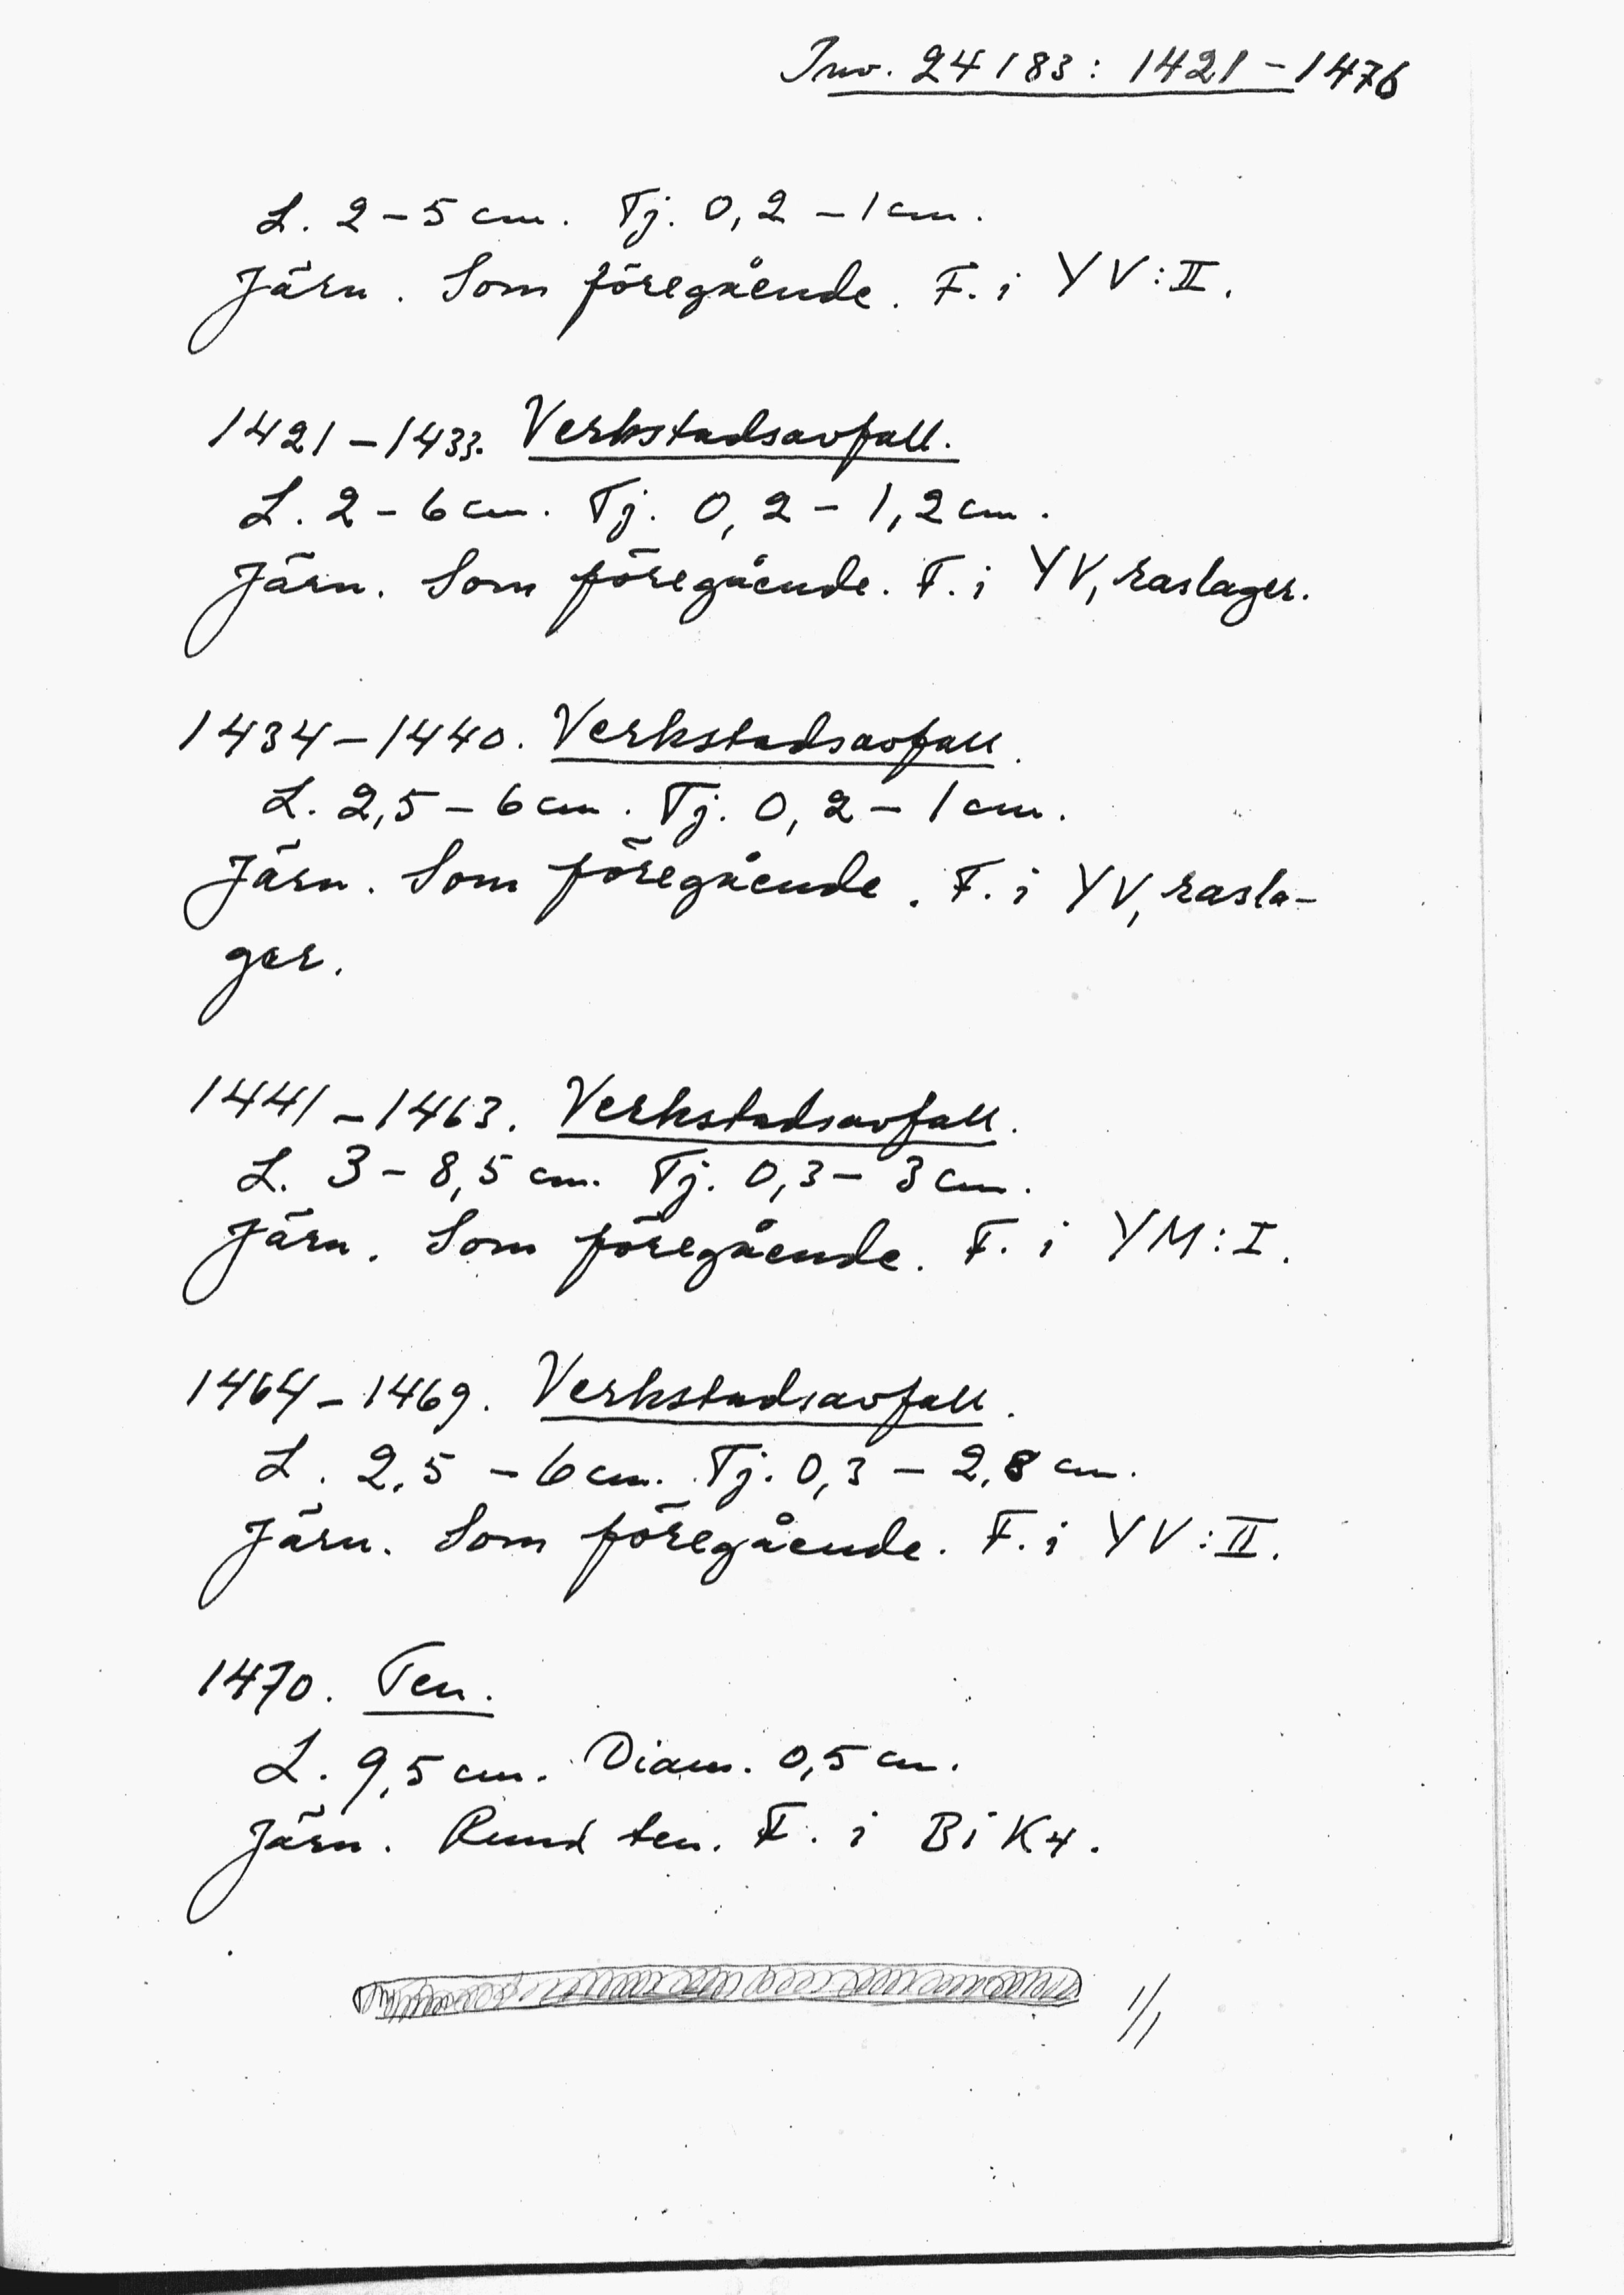 Inv. 24183: 1421-1476
L. 2-5 cm. Tj. 0,2-1 cm.
Järn. Som föregående. F. i YV:II.
1421-1433. Verkstadsavfall.
L. 2-6 cm. Tj. 0,2-1,2 cm.
Järn. Som föregående. F. i YV, raslager.
1434-1440. Verkstadsavfall.
L. 2,5-6 cm. Tj. 0,2-1 cm.
Järn. Som föregående. F. i YV, rasla-
ger.
1441-1463. Verkstadsavfall.
L. 3-8,5 cm. Tj. 0,3-3 cm.
Järn. Som föregående. F. i YM:I.
1464-1469. Verkstadsavfall.
L. 2,5-6 cm. Tj. 0,3-2,8 cm.
Järn. Som föregående. F. i YV:II.
1470. Ten.
L. 9,5 cm. Diam. 0,5 cm.
Järn. Rund ten. F. i BiK4.
1/1